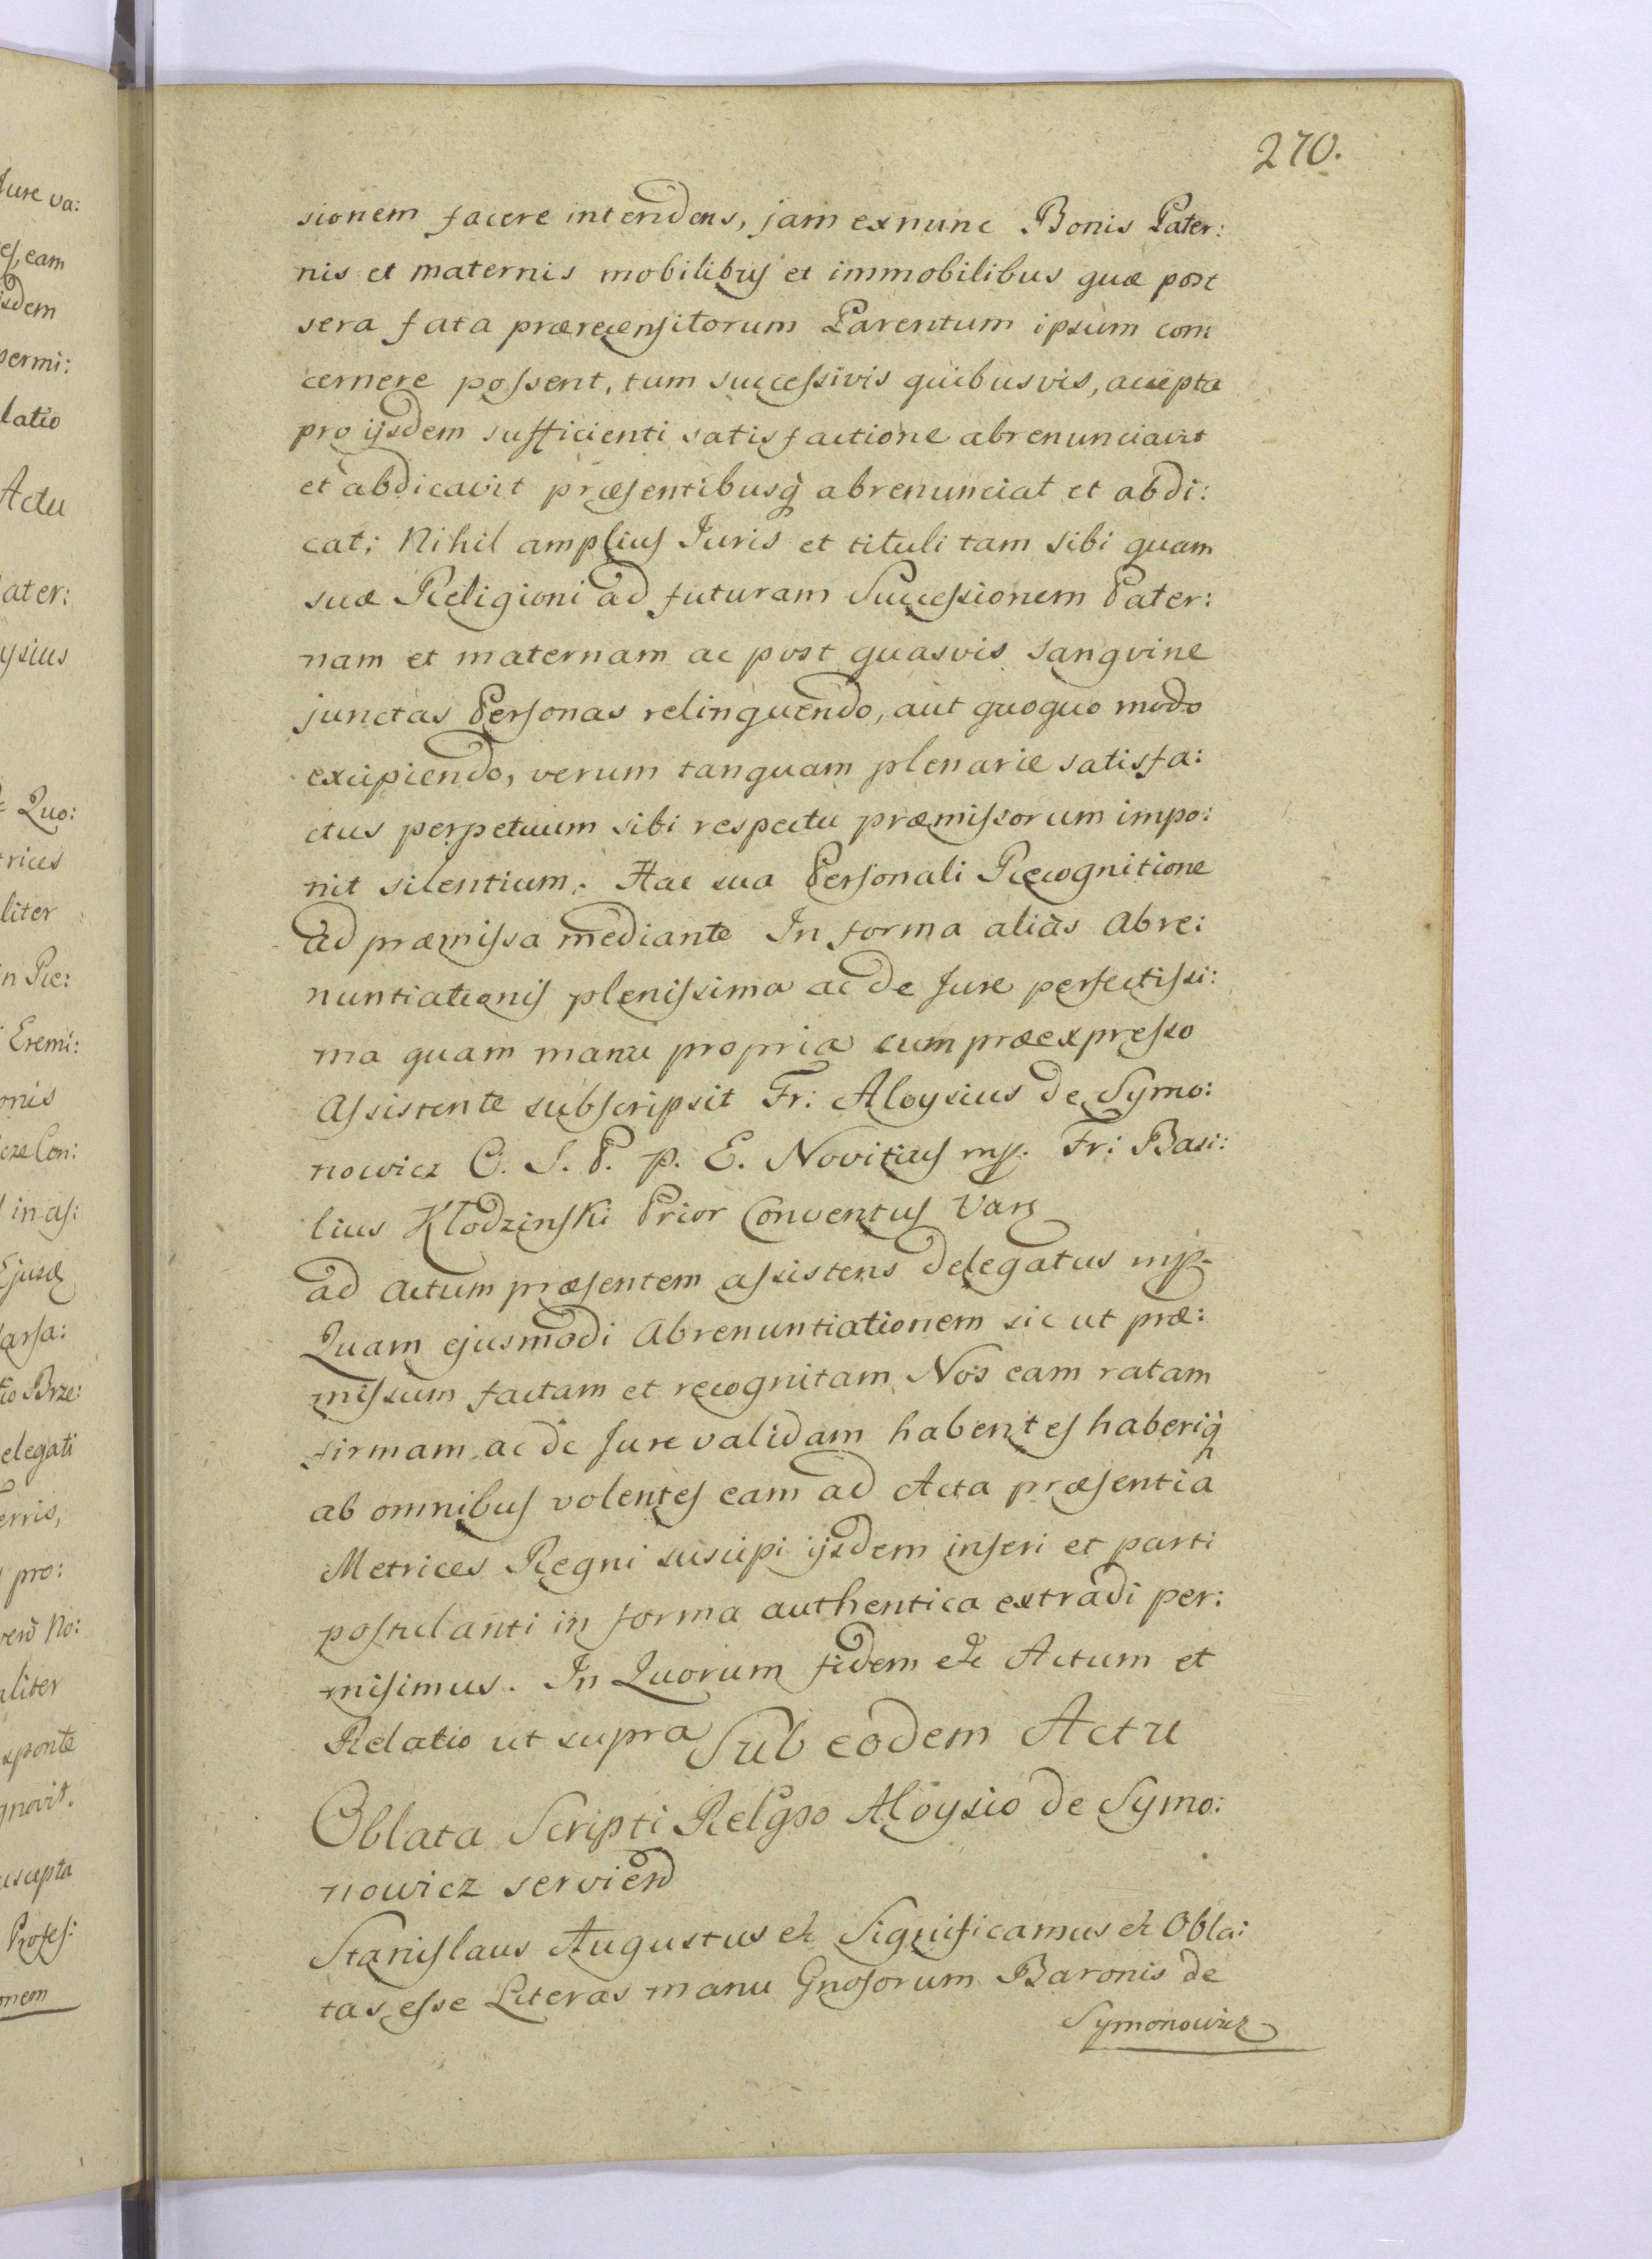 270.
sionem facere intendens, jam exnunc Bonis Pater:
nis et maternis mobilibus et immobilibus quæ post
sera fata prærecensitorum Parentum ipsum con
cernere possent, tum successivis quibusvis, accepta
pro ijsdem sufficienti satisfactione abrenunciavit
et abdicavit præsentibusq abrenunciat et abdi:
cat; Nihil amplius Juris et tituli tam sibi quam
suæ Religioni ad futuram Successionem Pater:
nam et maternam ac post quasvis sangvine
junctas Personas relinquendo, aut quoquo modo
excipiendo, verum tanquam plenarie satisfa:
ctus perpetuum sibi respectu præmissorum impo:
nit silentium. Hac sua Personali Recognitione
ad præmissa mediante In forma alias Abre:
nuntiationis plenissima ac de Jure perfectissi:
ma quam manu propria cum præexpresso
Assistente subscripsit Fr: Aloysius de Symo:
nowicz O. S. P. p. E. Novitius mp. Fr: Basi:
lius Kłodzinski Prior Conventus Vars
ad Actum præsentem assistens delegatus mp.
Quam ejusmodi Abrenuntiationem sic ut præ:
missum factam et recognitam Nos eam ratam
firmam ac de Jure validam habentes haberiq
ab omnibus volentes eam ad Acta præsentia
Metrices Regni suscipi ijsdem inseri et parti
postulanti in forma authentica extradi per:
misimus. In Quorum fidem etc Actum et
Relatio ut supra Sub eodem Actu
Oblata Scripti Relgso Aloysio de Symo:
nowicz serviend
Stanislaus Augustus etc Significamus etc Obla:
tas esse Literas manu Gnosorum Baronis de
Symonowicz